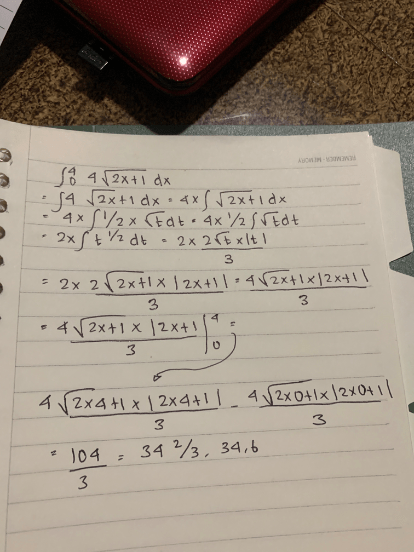 REMEMBER · MEMORY
∫₀⁴ 4√(2x+1) dx
= ∫4 √(2x+1) dx = 4x∫ √(2x+1) dx
= 4x ∫ 1/2 x √t dt = 4x 1/2 ∫√t dt
= 2x∫ t^1/2 dt = 2x (2√t x|t|)/3
= 2x (2√(2x+1) x |2x+1|)/3 = (4√(2x+1) x |2x+1|)/3
= (4√(2x+1) x |2x+1|)/3 |₀⁴ =
(4√(2x4+1) x |2x4+1|)/3 - (4√(2x0+1) x |2x0+1|)/3
= 104/3 = 34 2/3, 34,6